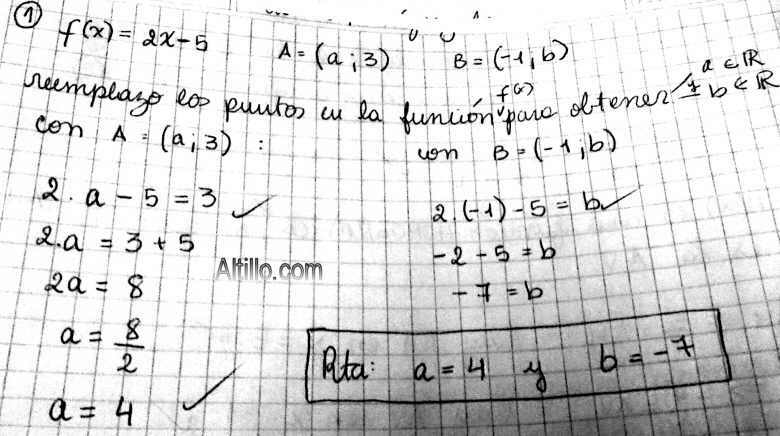 ① f(x) = 2x-5 A = (a ; 3) B = (-1, b)
reemplazo los puntos en la función f(x) para obtener a ∈ ℝ y b ∈ ℝ
con A = (a; 3) :
2. a - 5 = 3
2.a = 3 + 5
2a = 8
a = 8/2
a = 4
con B = (-1, b)
2.(-1) - 5 = b
-2 - 5 = b
-7 = b
Rta: a = 4 y b = -7
Altillo.com